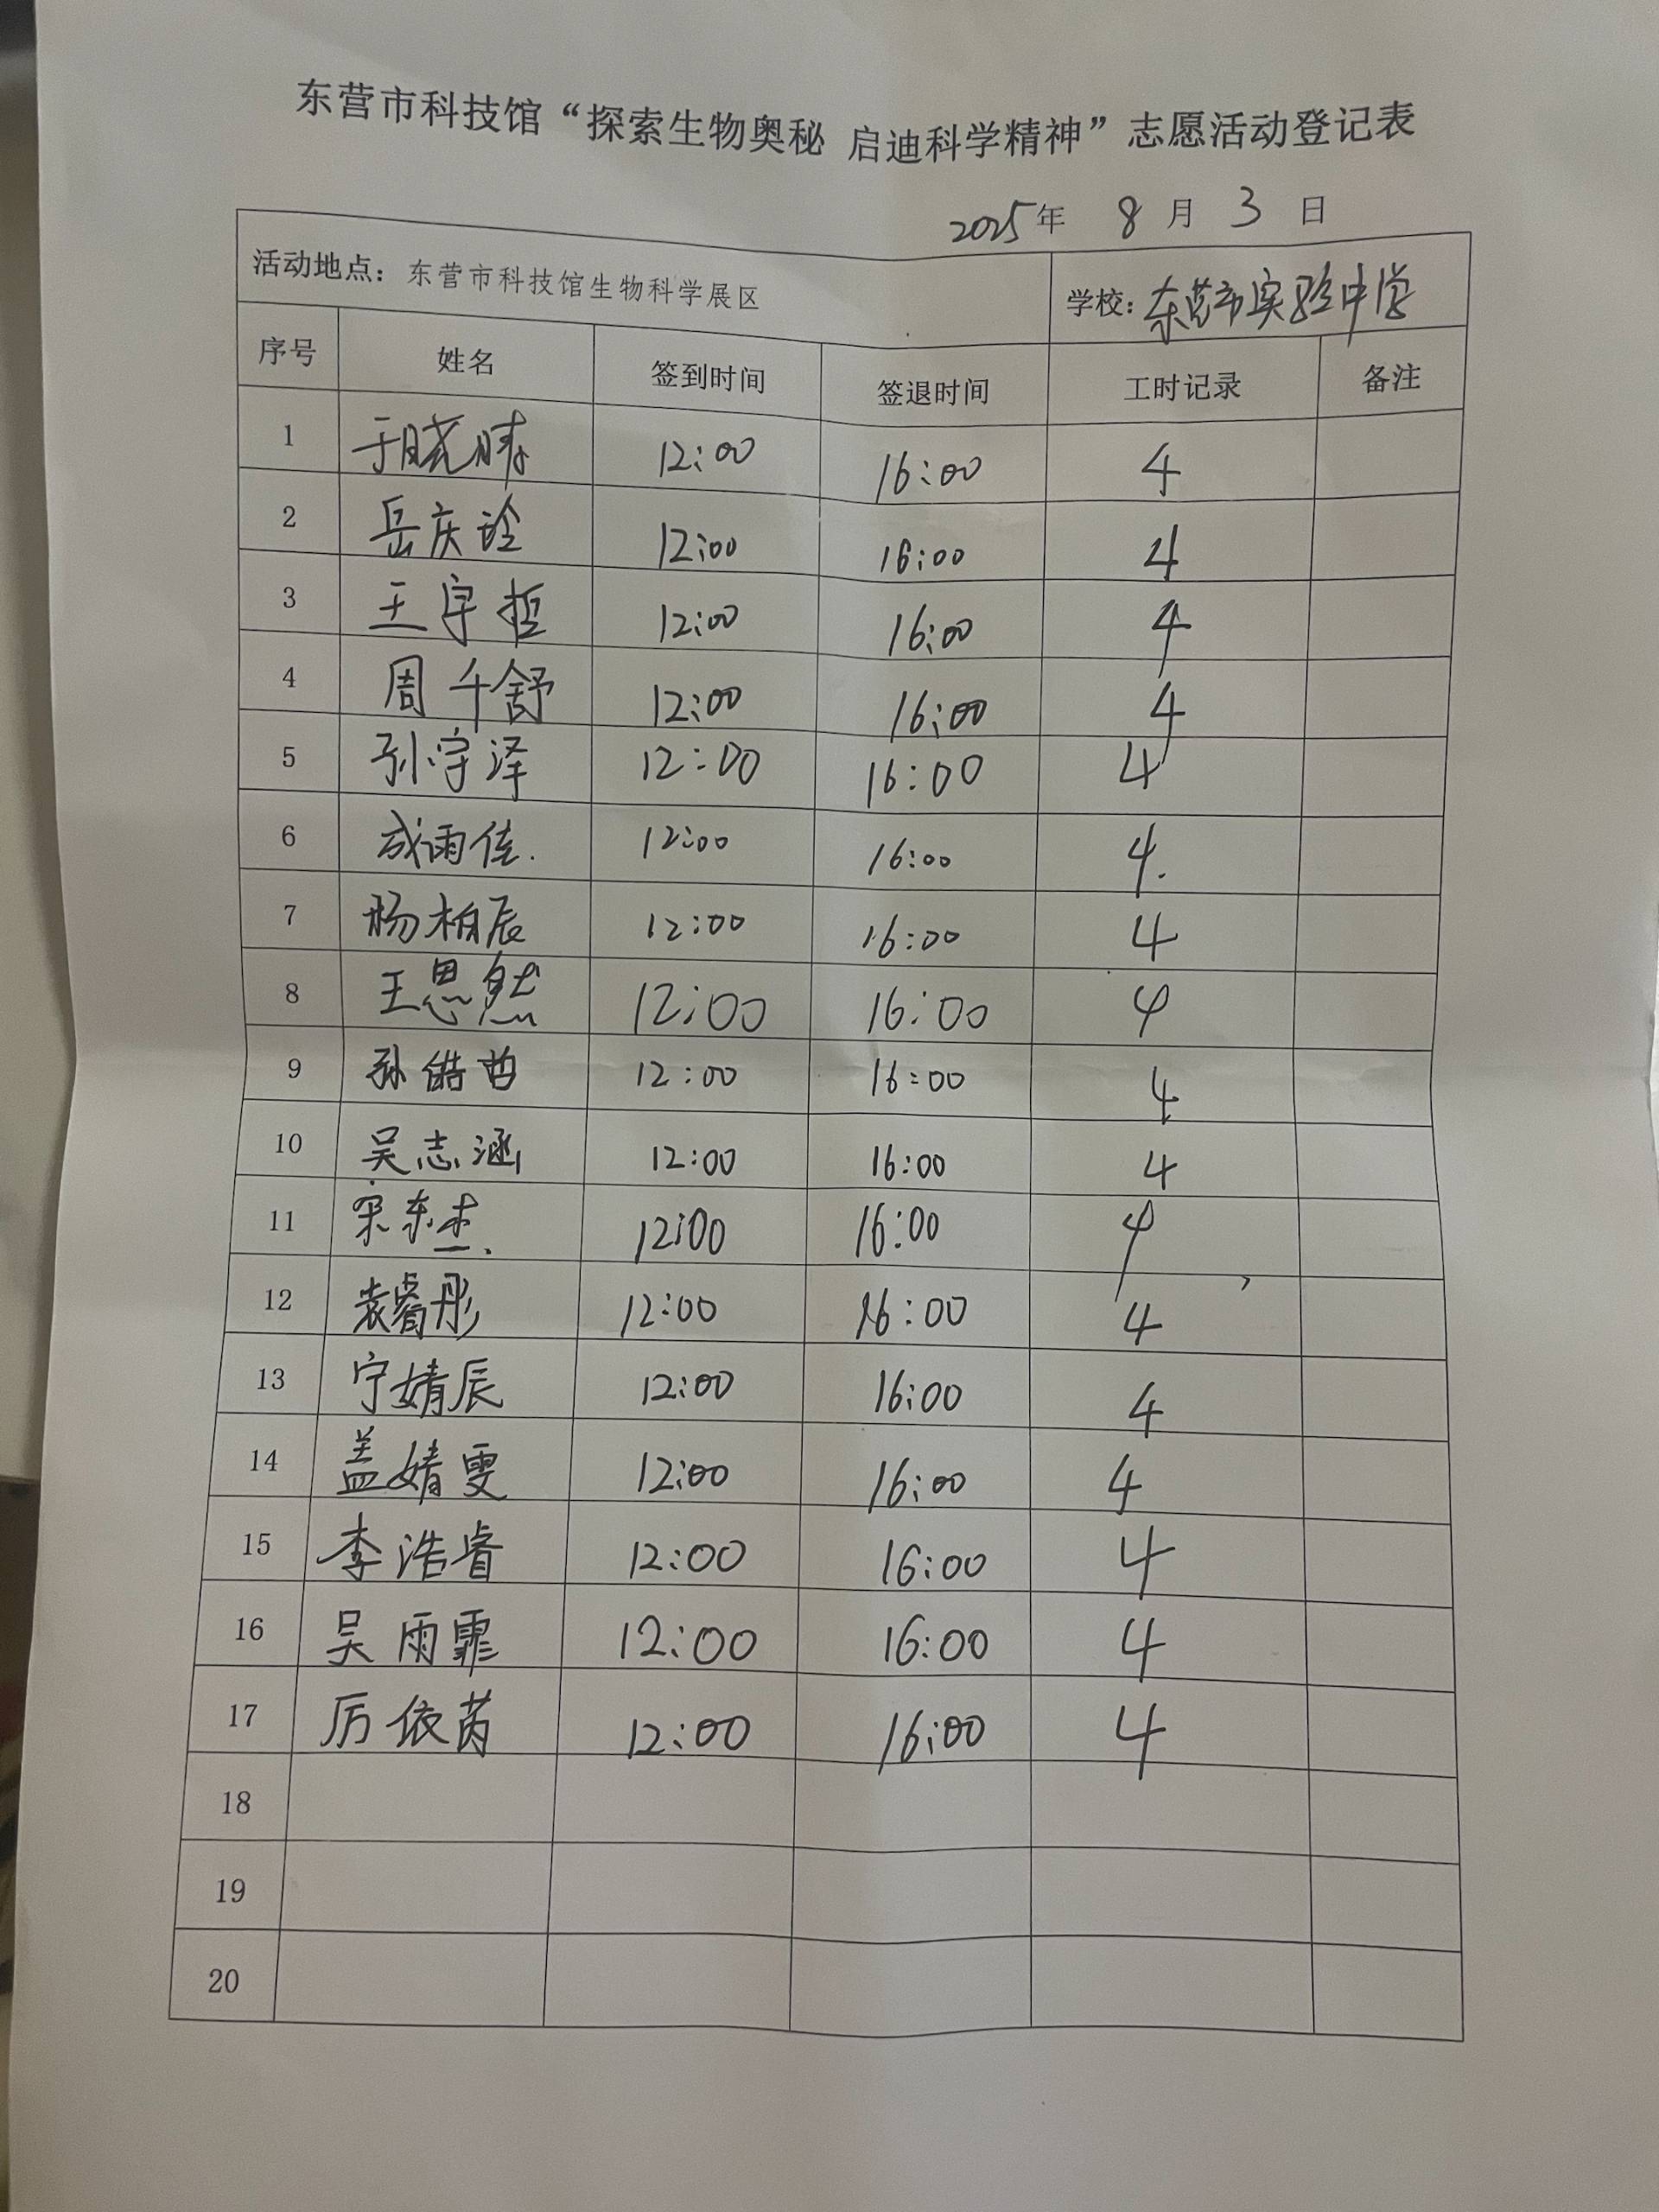 东营市科技馆“探索生物奥秘 启迪科学精神”志愿活动登记表
2025年 8 月 3 日
活动地点：东营市科技馆生物科学展区 学校：东营市实验中学
序号 姓名 签到时间 签退时间 工时记录 备注
1 于晓晴 12:00 16:00 4
2 岳庆玲 12:00 16:00 4
3 王宇哲 12:00 16:00 4
4 周千舒 12:00 16:00 4
5 孙宇泽 12:00 16:00 4
6 成雨佳. 12:00 16:00 4.
7 杨柏辰 12:00 16:00 4
8 王思然 12:00 16:00 4
9 孙 12:00 16:00 4
10 吴志涵 12:00 16:00 4
11 宋东杰. 12:00 16:00 4
12 袁睿彤 12:00 16:00 4
13 宁婧辰 12:00 16:00 4
14 盖婧雯 12:00 16:00 4
15 李浩睿 12:00 16:00 4
16 吴雨霏 12:00 16:00 4
17 厉依芮 12:00 16:00 4
18
19
20